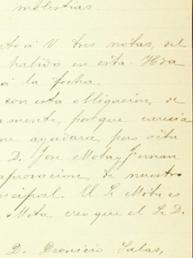 molestias.
V. tres notas, del
habido en esta
á la fecha.
con esta obligacion, se
amente, porque carecia
me ayudara, pero esta
D. Jose Mota y
aprovacion de nuestro
cipal. El Sr. Mota, es
Mota, creo que el Sr. D.
D. Dionicio Salas,